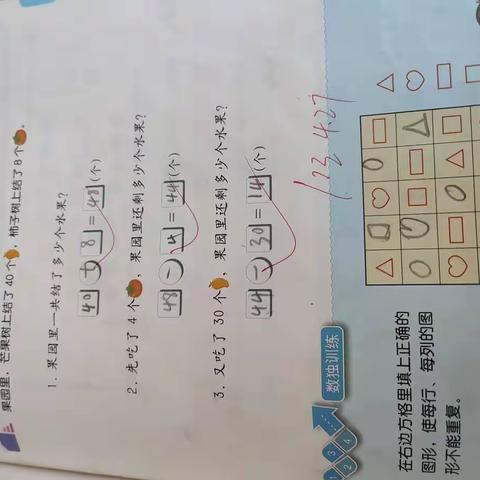 果园里，芒果树上结了40个，柿子树上结了8个。
1. 果园里一共结了多少个水果？
40 + 8 = 48 (个)
2. 先吃了4个，果园里还剩多少个水果？
48 - 4 = 44 (个)
3. 又吃了30个，果园里还剩多少个水果？
44 - 30 = 14 (个)
1 2 3 4
数独训练
在右边方格里填上正确的
图形，使每行、每列的图
形不能重复。